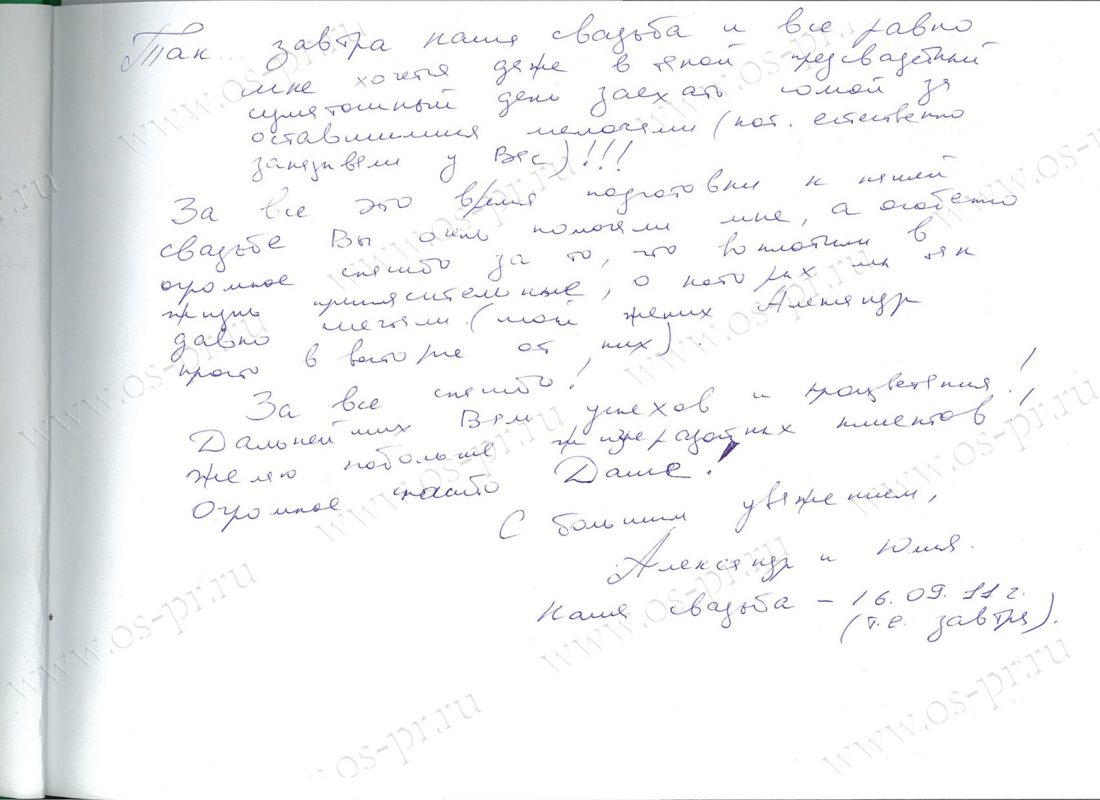 Так... завтра наша свадьба и все равно
мне хочется даже в такой предсвадебный
суматошный день заехать за
оставшимися мелочами (кот. естественно
заказывали у Вас)!!!
За все это время подготовки к нашей
свадьбе Вы очень помогали мне, а особенно
огромное спасибо за то, что воплотили в
жизнь пригласительные, о которых мы так
давно мечтали (мой жених Александр
просто в восторге от них).
За все спасибо!
Дальнейших Вам успехов и процветания!
Желаю побольше жизнерадостных клиентов!
Огромное спасибо Даше!
С большим уважением,
Александр и Юлия.
Наша свадьба – 16.09.11 г.
(т.е. завтра).
www.os-pr.ru